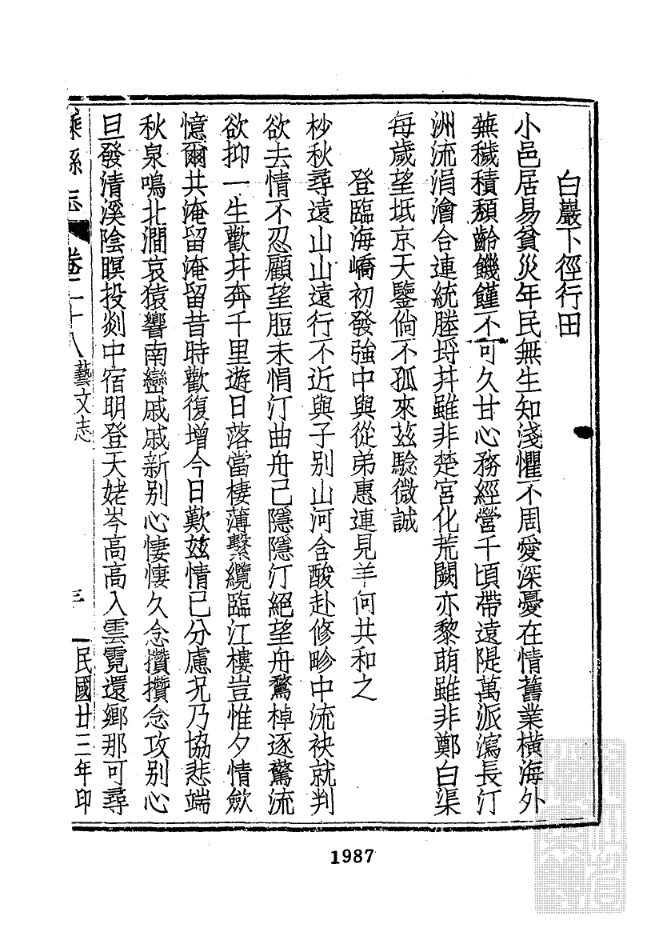 白巖下徑行田
小邑居易貧災年民無生知淺懼不周愛深憂在情舊業橫海外
蕪穢積頹齡饑饉不可久甘心務經營千頃帶遠隄萬派瀉長汀
洲流涓澮合連統塍埓并雖非楚宮化荒闕亦黎萌雖非鄭白渠
每歲望坻京天鑒倘不孤來玆驗微誠
登臨海嶠初發強中與從弟惠連見羊何共和之
杪秋尋遠山山遠行不近與子別山河含酸赴修畛中流袂就判
欲去情不忍顧望脰未悁汀曲舟已隱隱汀絕望舟鶩棹逐驚流
欲抑一生歡并奔千里遊日落當棲薄繫纜臨江樓豈惟夕情歛
憶爾共淹留淹留昔時歡復增今日歎玆情已分慮況乃協悲端
秋泉鳴北澗哀猿響南巒戚戚新別心悽悽久念攢攢念攻別心
旦發清溪陰暝投剡中宿明登天姥岑高高入雲霓還鄉那可尋
嵊縣志 卷二十八 藝文志 三 民國廿三年印
1987